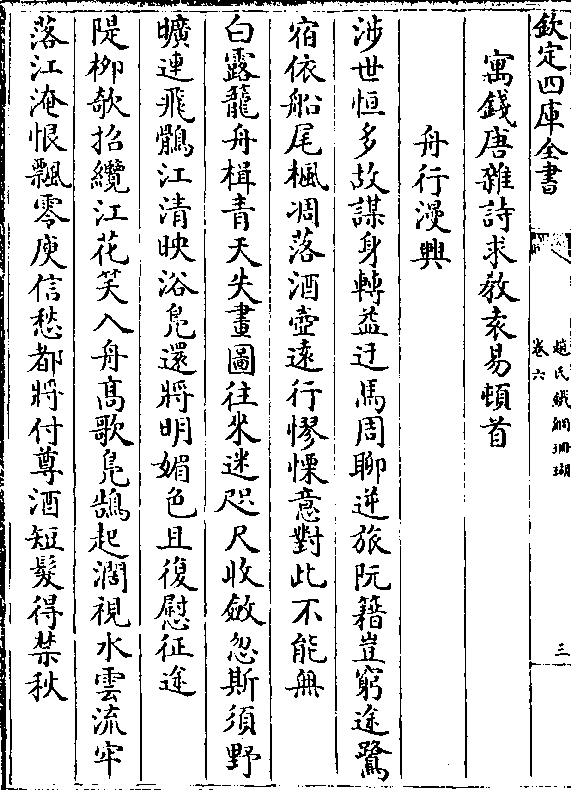 欽定四庫全書
趙氏鐵網珊瑚
卷六
三
寓錢唐雜詩求教袁易頓首
舟行漫興
涉世恒多故謀身轉益迂馬周聊逆旅阮籍豈窮途鷺
宿依船尾楓凋落酒壺遠行憀慄意對此不能無
白露籠舟楫青天失畫圖往來迷咫尺收斂忽斯須野
曠連飛鶻江清映浴鳧還將明媚色且復慰征途
隄柳欹招纜江花笑入舟高歌鳧鵠起濶視水雲流牢
落江淹恨飄零庾信愁都將付尊酒短髮得禁秋